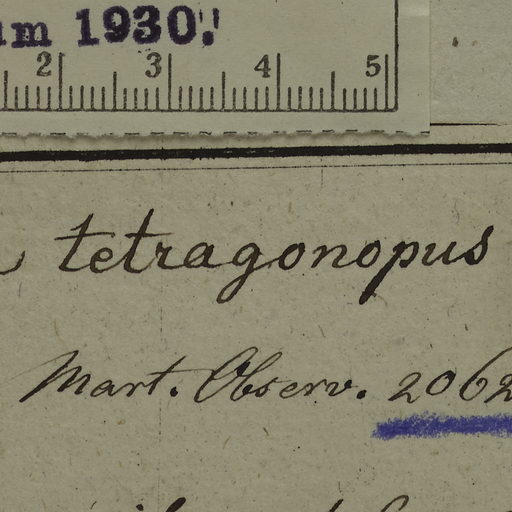 1930.
2 3 4 5
tetragonopus
Mart. Observ. 2062